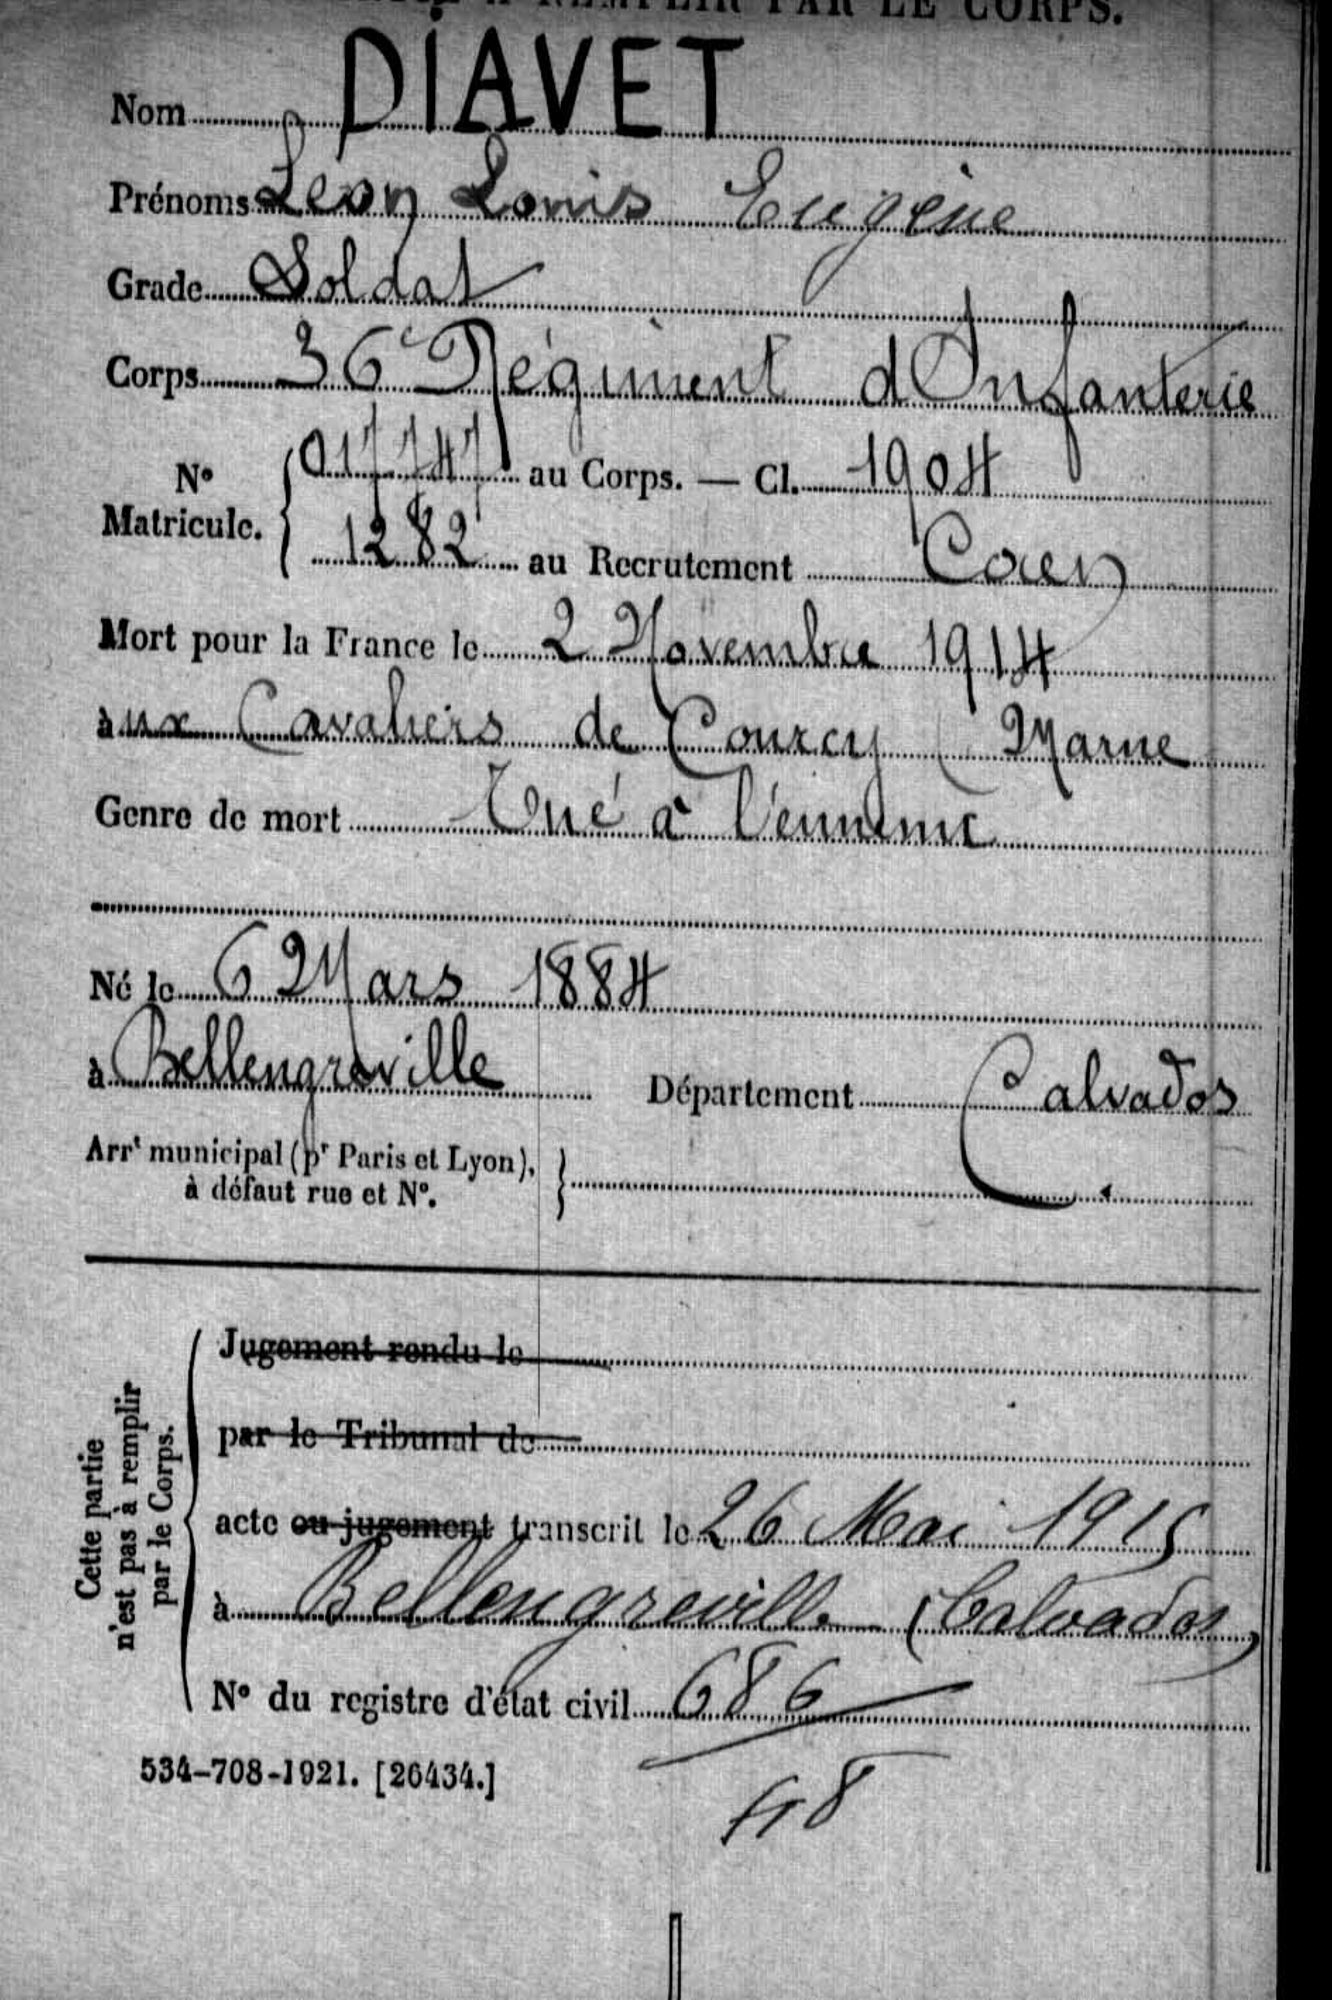 À REMPLIR PAR LE CORPS.
Nom DIAVET
Prénoms Léon Louis Eugène
Grade Soldat
Corps 36e Régiment d'Infanterie
No Matricule. { 017747 au Corps. — Cl. 1904
1282 au Recrutement Caen
Mort pour la France le 2 Novembre 1914
aux Cavaliers de Courcy (Marne
Genre de mort Tué à l'ennemi
Né le 6 Mars 1884
à Bellengreville Département Calvados
Arrt municipal (pr Paris et Lyon), à défaut rue et No. }
Cette partie n'est pas à remplir par le Corps.
Jugement rendu le
par le Tribunal de
acte ou jugement transcrit le 26 Mai 1915
à Bellengreville (Calvados)
No du registre d'état civil 686
534-708-1921. [26434.]